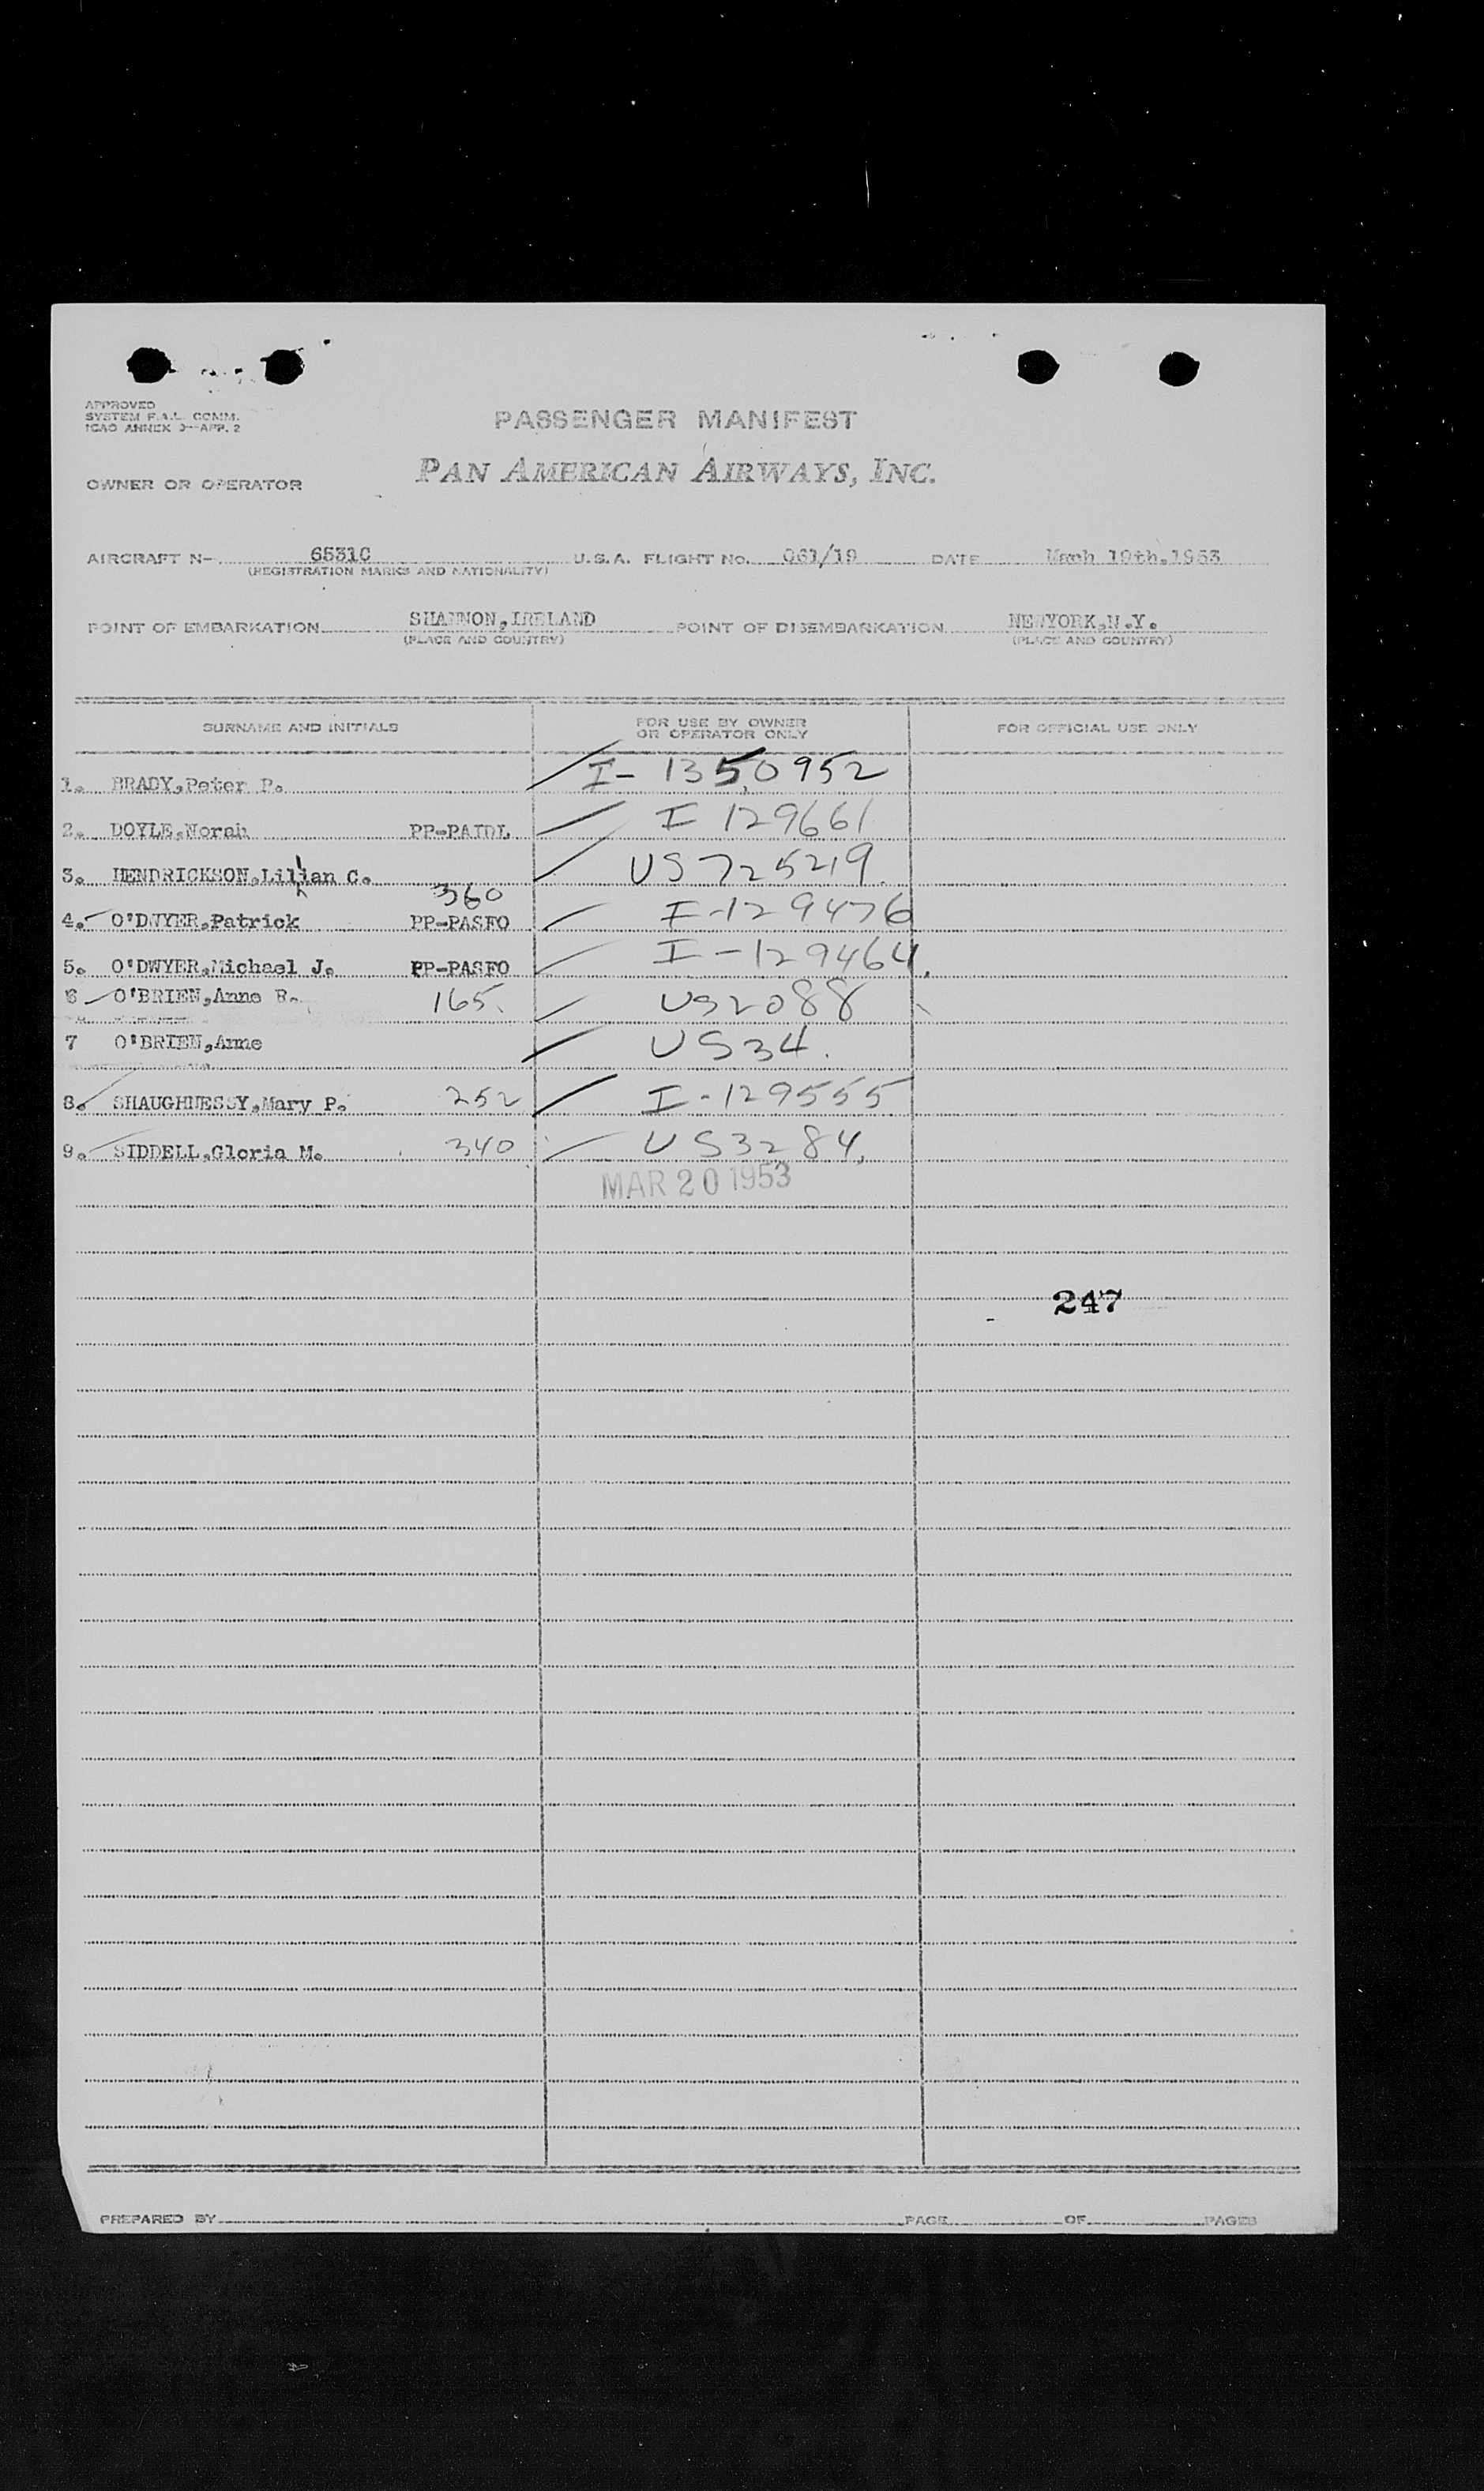 APPROVED
SYSTEM F.A.L. COMM.
ICAO ANNEX 9—APP. 2
PASSENGER MANIFEST
OWNER OR OPERATOR PAN AMERICAN AIRWAYS, INC.
AIRCRAFT N- 6531C U.S.A. FLIGHT NO. 061/19 DATE Mach 19th.1953
(REGISTRATION MARKS AND NATIONALITY)
POINT OF EMBARKATION SHANNON,IRELAND POINT OF DISEMBARKATION NEWYORK,N.Y.
(PLACE AND COUNTRY) (PLACE AND COUNTRY)
SURNAME AND INITIALS FOR USE BY OWNER OR OPERATOR ONLY FOR OFFICIAL USE ONLY
1. BRADY,Peter P. I- 1350952
2. DOYLE,Norah PP-PAIDL I 129661
3. HENDRICKSON,Lillian C. US 725219
360
4. O'DWYER,Patrick PP-PASFO I-129476
5. O'DWYER,Michael J. PP-PASFO I-129464
6 O'BRIEN,Anne 165. US2088
7 O'BRIEN,Anne US34.
8. SHAUGHNESSY,Mary P. 252 I-129555
9. SIDDELL,Gloria M. 340 US3284
MAR 20 1953
247
PREPARED BY PAGE OF PAGES